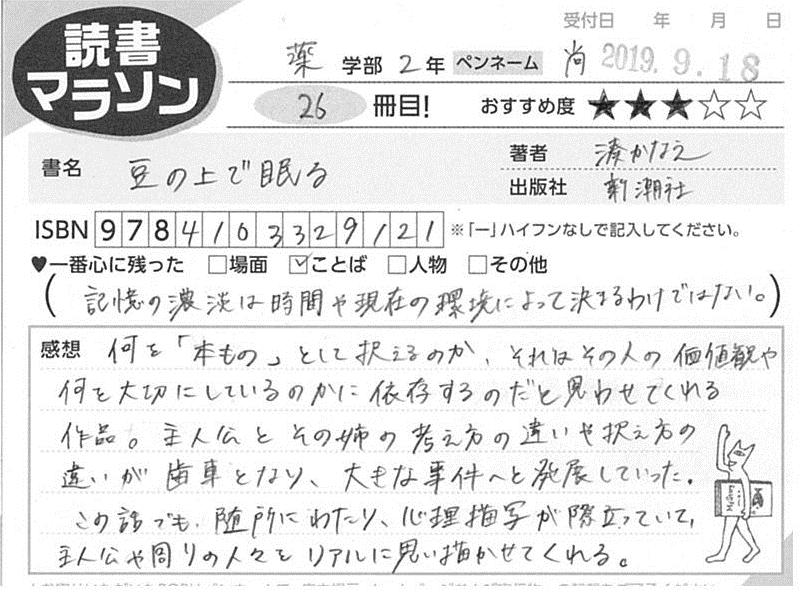 受付日 年 月 日
読書
マラソン
薬 学部 2年 ペンネーム 尚 2019.9.18
26 冊目! おすすめ度 ★★★☆☆
書名 豆の上で眠る
著者 湊かなえ
出版社 新潮社
ISBN 9784103329121 ※「ー」ハイフンなしで記入してください。
♥一番心に残った □場面 ☑ことば □人物 □その他
(記憶の濃淡は時間や現在の環境によって決まるわけではない。)
感想 何を「本もの」として捉えるのか、それはその人の価値観や
何を大切にしているのかに依存するのだと思わせてくれる
作品。主人公とその姉の考え方の違いや捉え方の
違いが歯車となり、大きな事件へと発展していった。
この話でも、随所にわたり、心理描写が際立っていて、
主人公や周りの人々をリアルに思い描かせてくれる。